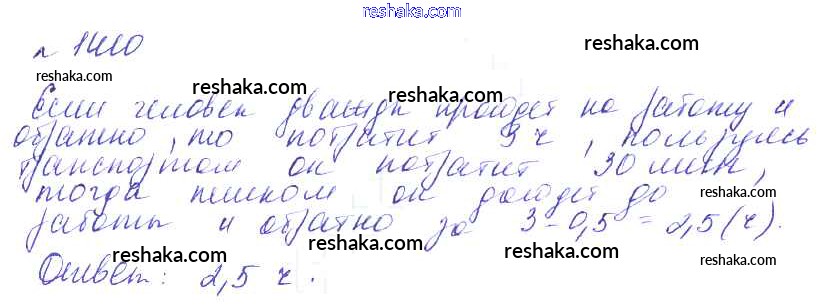 reshaka.com
№ 1410
reshaka.com
reshaka.com
reshaka.com reshaka.com
Если человек дважды пройдет на работу и
обратно, то потратит 3 ч, пользуясь
reshaka.com
транспортом он потратит 30 мин,
reshaka.com reshaka.com
тогда пешком он дойдет до
reshaka.com
работы и обратно за 3 - 0,5 = 2,5 (ч).
reshaka.com reshaka.com
Ответ: 2,5 ч.
reshaka.com